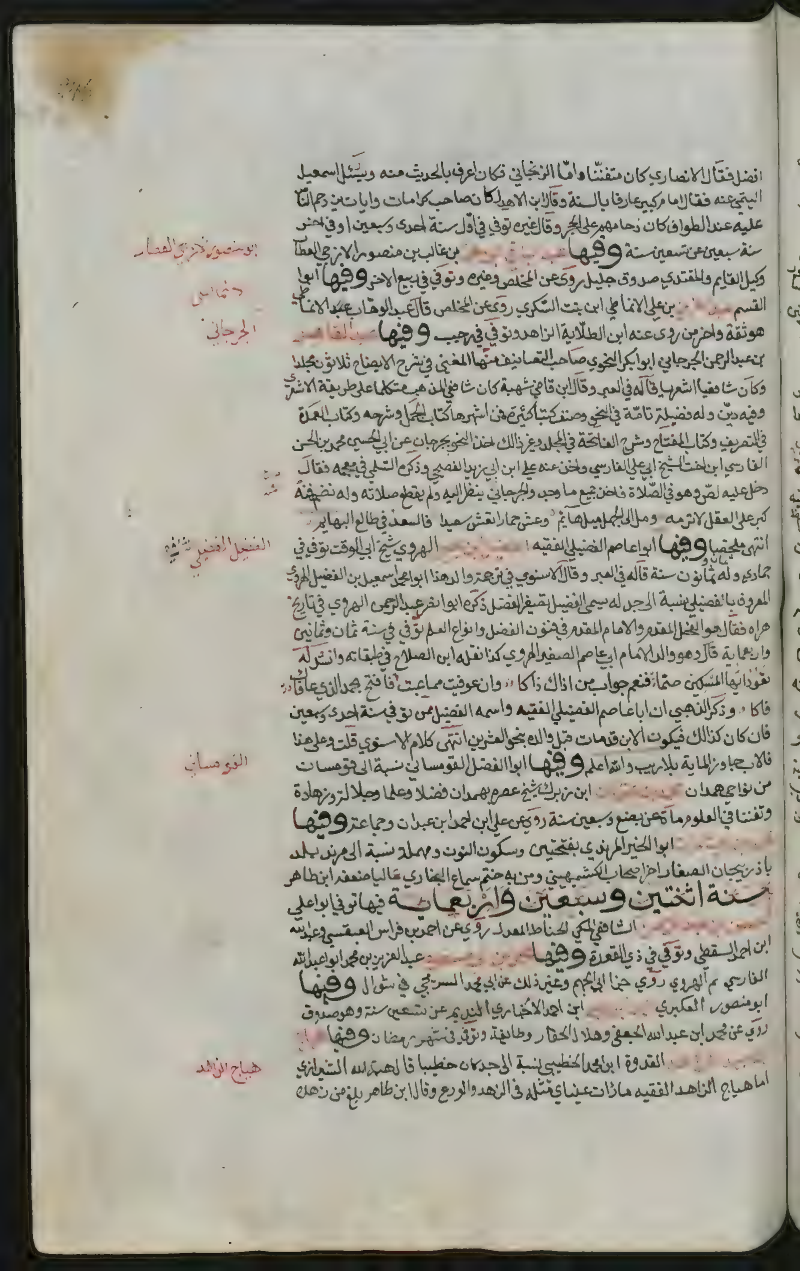 افضل فقال الانصاري كان متفننا واما الزنجاني فكان اعرف بالحديث منه وسئل اسمعيل
التيمي عنه فقال امام كبير عارف بالسنة وقال ابن الاهدل كان صاحب كرامات وايات يزدحم الناس
عليه عند الطواف كان دحامهم على الحجر وقال غيره توفي في اول سنة احدى وسبعين او في اخر
سنة سبعين عن تسعين سنة وفيها بن غالب بن منصور الازجي العطار
ابو منصور الازجي العطار
وكيل القايم والمقتدي صدوق جليل روى عن المخلص وغيره وتوفي في ربيع الاخر وفيها ابوا
القسم بن علي الانماطي ابن بنت السكري روى عن المخلص قال عبد الوهاب الانماطي
هو ثقة واخر من روى عنه ابن الطلاية الزاهد وتوفي في رجب وفيها عبد القاهر
الجرجاني
بن عبد الرحمن الجرجاني ابوا بكر النحوي صاحب التصانيف منها المغني في شرح الايضاح ثلاثون مجلدا
وكان شافعيا اشعريا قاله في العبر وقال ابن قاضي شهبة كان شافعي المذهب متكلما على طريقة الاشعري
وفيه دين وله فضيلة تامة في النحو وصنف كتبا كثيرة فمن اشهرها كتاب الجمل وشرحه وكتاب العمدة
في التصريف وكتاب المفتاح وشرح الفاتحة في مجلد وغير ذالك اخذ النحو بجرجان عن ابي الحسين محمد بن الحسن
الفارسي ابن اخت الشيخ ابي علي الفارسي واخذ عنه علي ابن ابي زيد الفصيحي وذكره السلفي في معجمه فقال
دخل عليه لص وهو في الصلاة فاخذ جميع ما وجد والجرجاني ينظر اليه ولم يقطع صلاته وله نظم فمنه
كبر على العقل لا ترمه ومل الى الجهل ميل هايم وعش حمارا تعش سعيدا فالسعد في طالع البهايم
انتهى ملخصا وفيها ابوا عاصم الفضيلي الفقيه الهروي شيخ ابي الوقت توفي في
الفضيل الفضيلي
جمادى وله ثمانون سنة قاله في العبر وقال الاسنوي في ترجمة والد هذا ابوا محمد اسمعيل بن الفضيل الهروي
المعروف بالفضيلي نسبة الى جد له يسمى الفضيل بتصغير الفضل ذكره ابوا نصر عبد الرحمن الهروي في تاريخ
هراه فقال هو الفحل المقدم والامام المقدم في فنون الفضل وانواع العلم توفي في سنة ثمان وثمانين
واربعماية قال وهو والد الامام ابي عاصم الصغير الهروي كذا نقله ابن الصلاح في طبقاته وانشد له
تعود ايها المسكين صمتا فنعم جواب من اذاك ذاكا وان عوفيت مما عبت فافتح بحمد الذي عافاك
فاكا وذكر الذهبي ان ابا عاصم الفضيلي الفقيه واسمه الفضيل ممن توفي سنة احدى وسبعين
فان كان كذالك فيكون الابن قد مات قبل والده بنحو العشرين انتهى كلام الاسنوي قلت وعلى هذا
فالاب جاوز الماية بلا ريب والله اعلم وفيها ابوا الفضل القومساني نسبة الى قومسان
القومساني
من نواحي همدان ابن زيرك شيخ عصره بهمدان فضلا وعلما وجلالة وزهادة
وتفننا في العلوم مات عن بضع وسبعين سنة روى عن علي ابن احمد ابن عبدان وجماعة وفيها
ابوا الخير المرندي بفتحتين وسكون النون ومهملة نسبة الى مرند بلد
باذربيجان الصفار اخر اصحاب الكشميهني ومن به ختم سماع البخاري عاليا ضعفه ابن طاهر
سنة اثنتين وسبعين واربعماية فيها توفي ابوا علي
الشافعي المكي الحناط المعدل روى عن احمد بن فراس العبقسي وعبد الله
ابن احمد السقطي وتوفي في ذي القعدة وفيها عبد العزيز بن محمد ابوا عبد الله
الفارسي ثم الهروي روى جزء ابي الجهم وغير ذلك عن ابي محمد السريجي في شوال وفيها
ابو منصور العكبري ابن احمد الاخباري النديم عن تسعين سنة وهو صدوق
روى عن محمد ابن عبد الله الجعفي وهلال الحفار وطائفة وتوفي في شهر رمضان وفيها
القدوة ابن محمد الحطيني نسبة الى جد كان حطيبا قال هبة الله الشيرازي
هياج الزاهد
اما هياج الزاهد الفقيه ما رات عيناي مثله في الزهد والورع وقال ابن طاهر بلغ من زهده